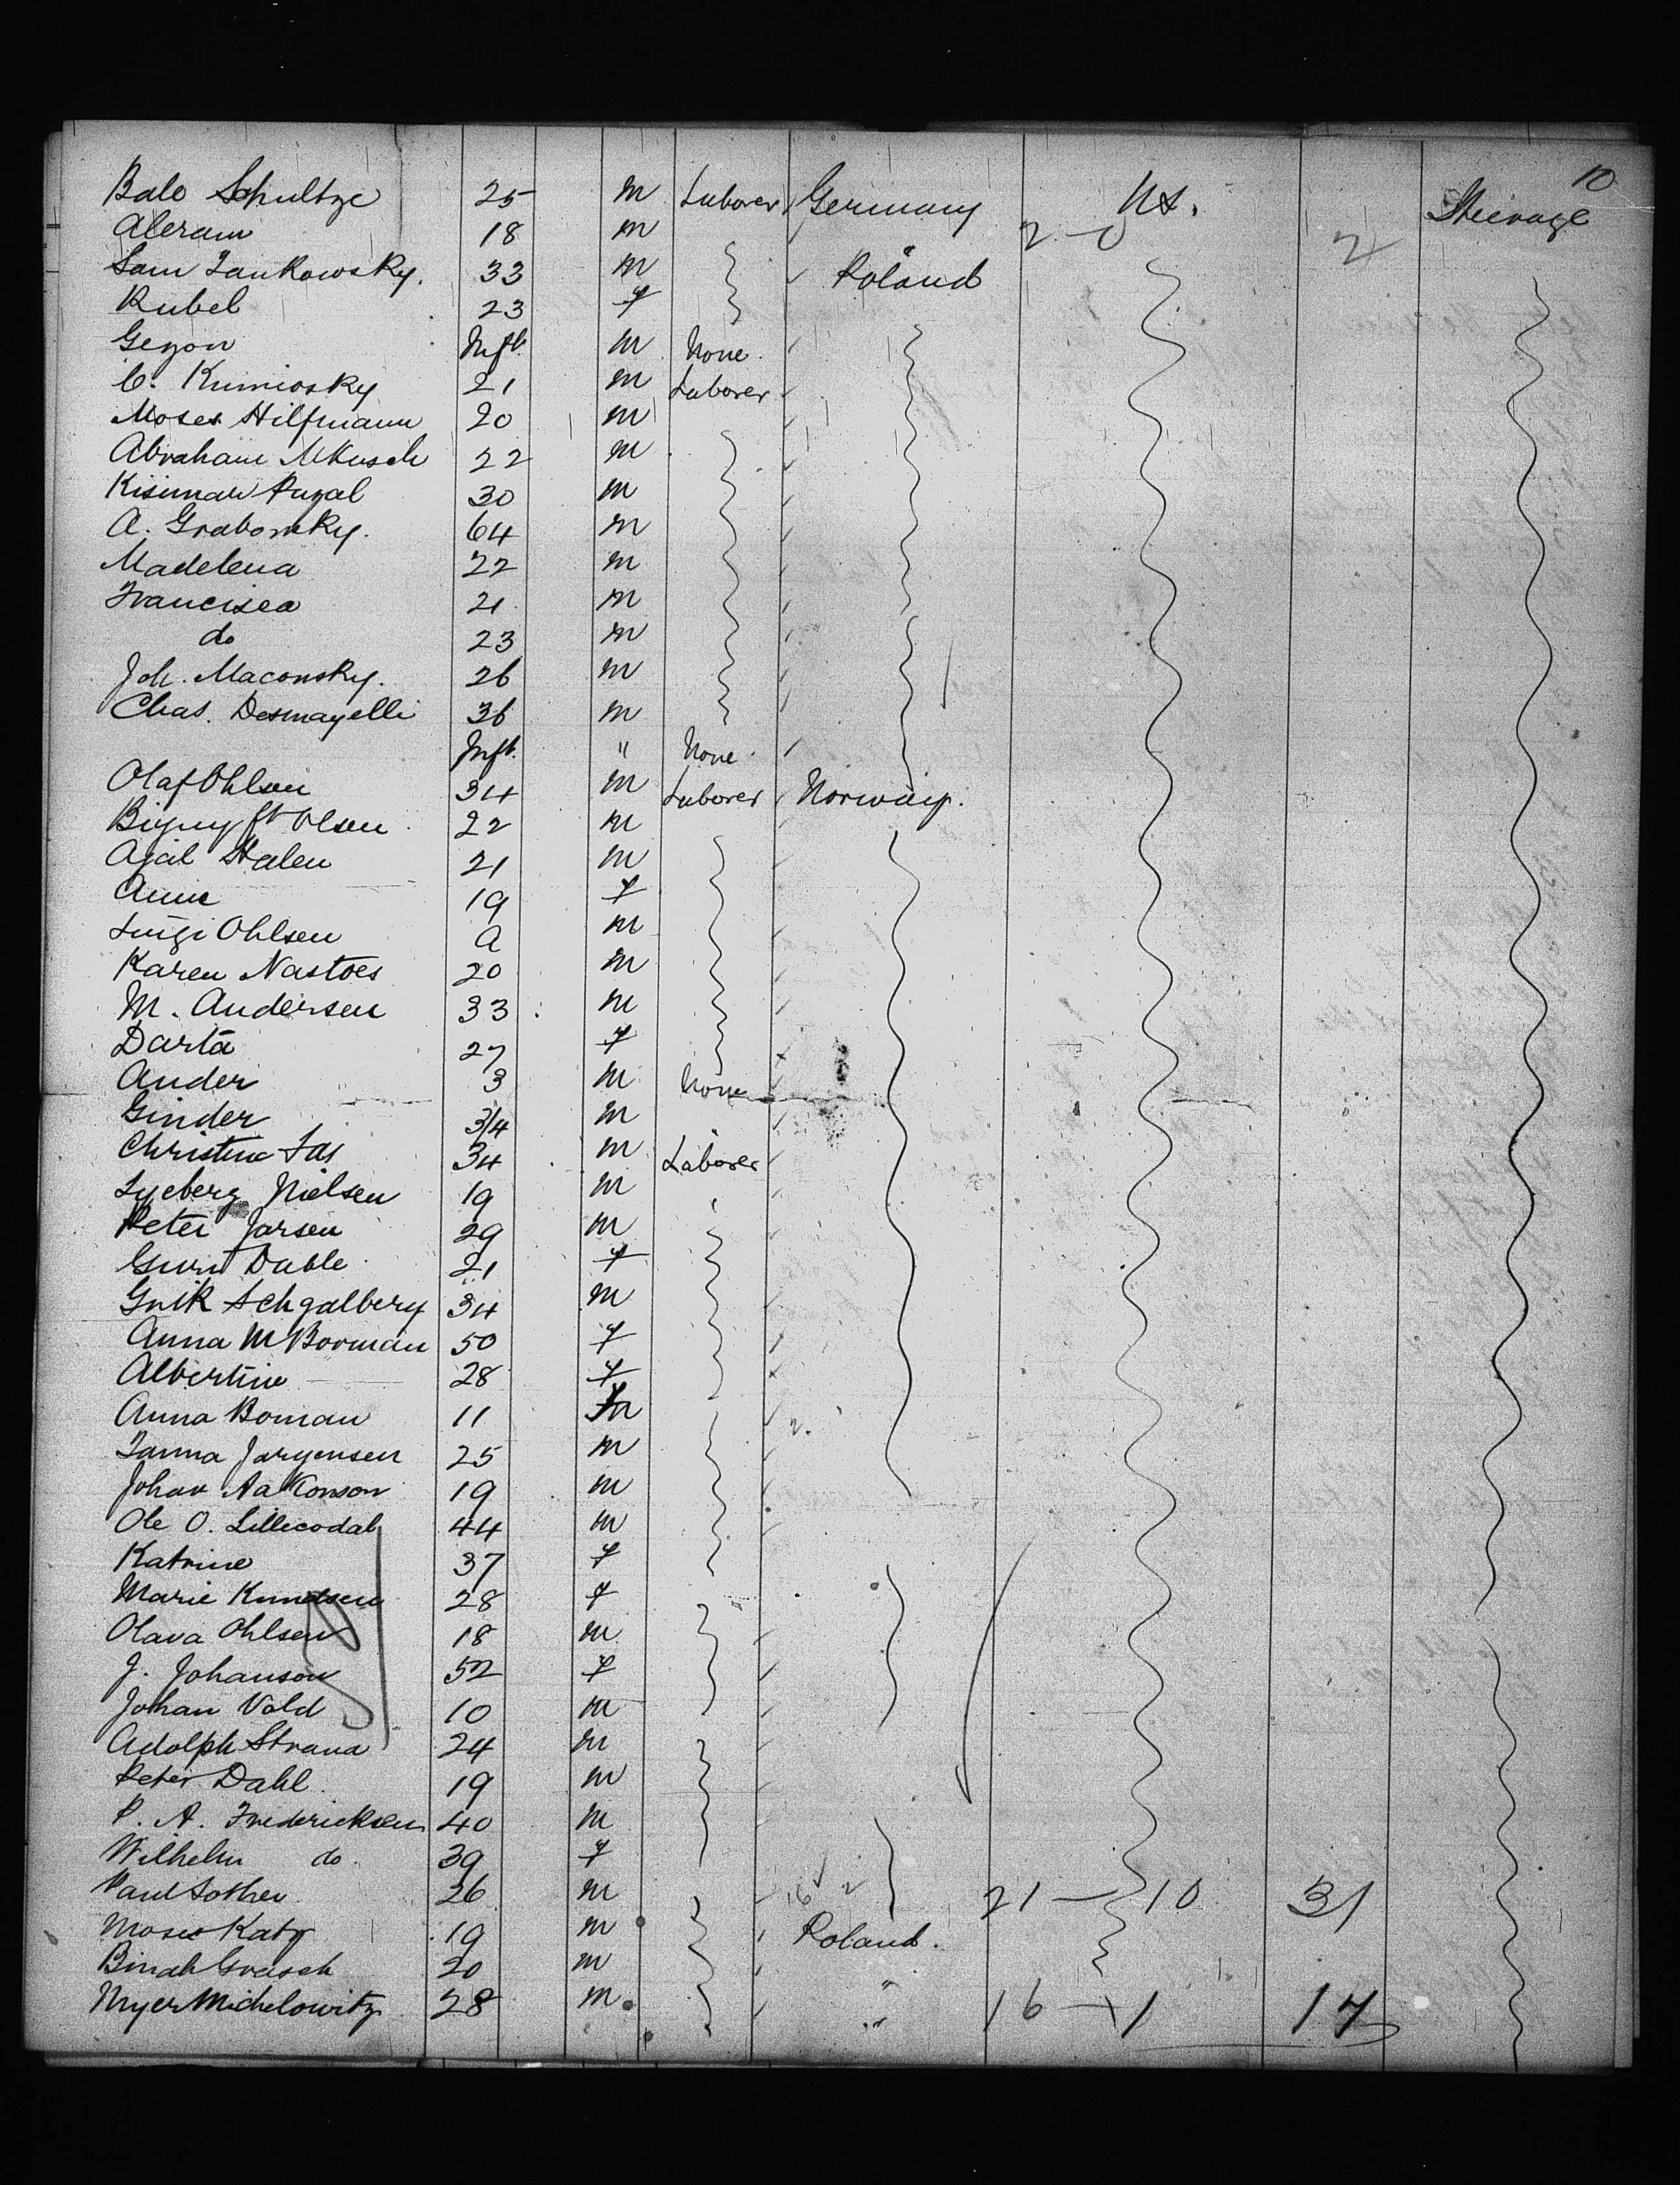 10
Balo Schultze 25 m Laborer Germany U.S. Steerage
Abram 18 m 2 — 0 2
Sam Jankowsky. 33 m Poland
Rubel 23 f
Gezon Inft. m None.
C. Kumiosky 21 m Laborer
Moses Hilfmann 20 m
Abraham Mkusch 22 m
Kisiman Puzal 30 m
A. Grabowsky. 64 m
Madelena 22 m
Francisea 21 m
do 23 m
Joh. Maconsky. 26 m
Chas. Desmayelli 36 m
Inft. " None.
Olaf Ohlsen 34 m Laborer Norway.
Olsen 22 m
Axil Stalen 21 m
Anne 19 f
Luigi Ohlsen a m
Karen Nastoes 20 m
M. Andersen 33 m
Darta 27 f
Ander 3 m None
Ginder 3/4 m
Christine Las 34 m Laborer
Lyeberg Nielsen 19 m
Peter Jarsen 29 m
Guru Dahle 21 f
Gnik Schgalbery 34 m
Anna M Borman 50 f
Albertine 28 f
Anna Boman 11 m
Janna Jorgensen 25 m
Johan Aakonson 19 m
Ole O. Lillecodal 44 m
Katrine 37 f
Marie Knudsen 28 f
Olava Ohlsen 18 m
J. Johanson 52 f
Johan Vold 10 m
Adolph Strana 24 m
Peter Dahl 19 m
P. A. Fredericksen 40 m
Wilhelm do. 39 f
Paul Sother 26 m 21 — 10 31
Moses Katz 19 m Poland.
Binah Grasch 20 m "
Myer Michelowitz 28 m " 16 — 1 17